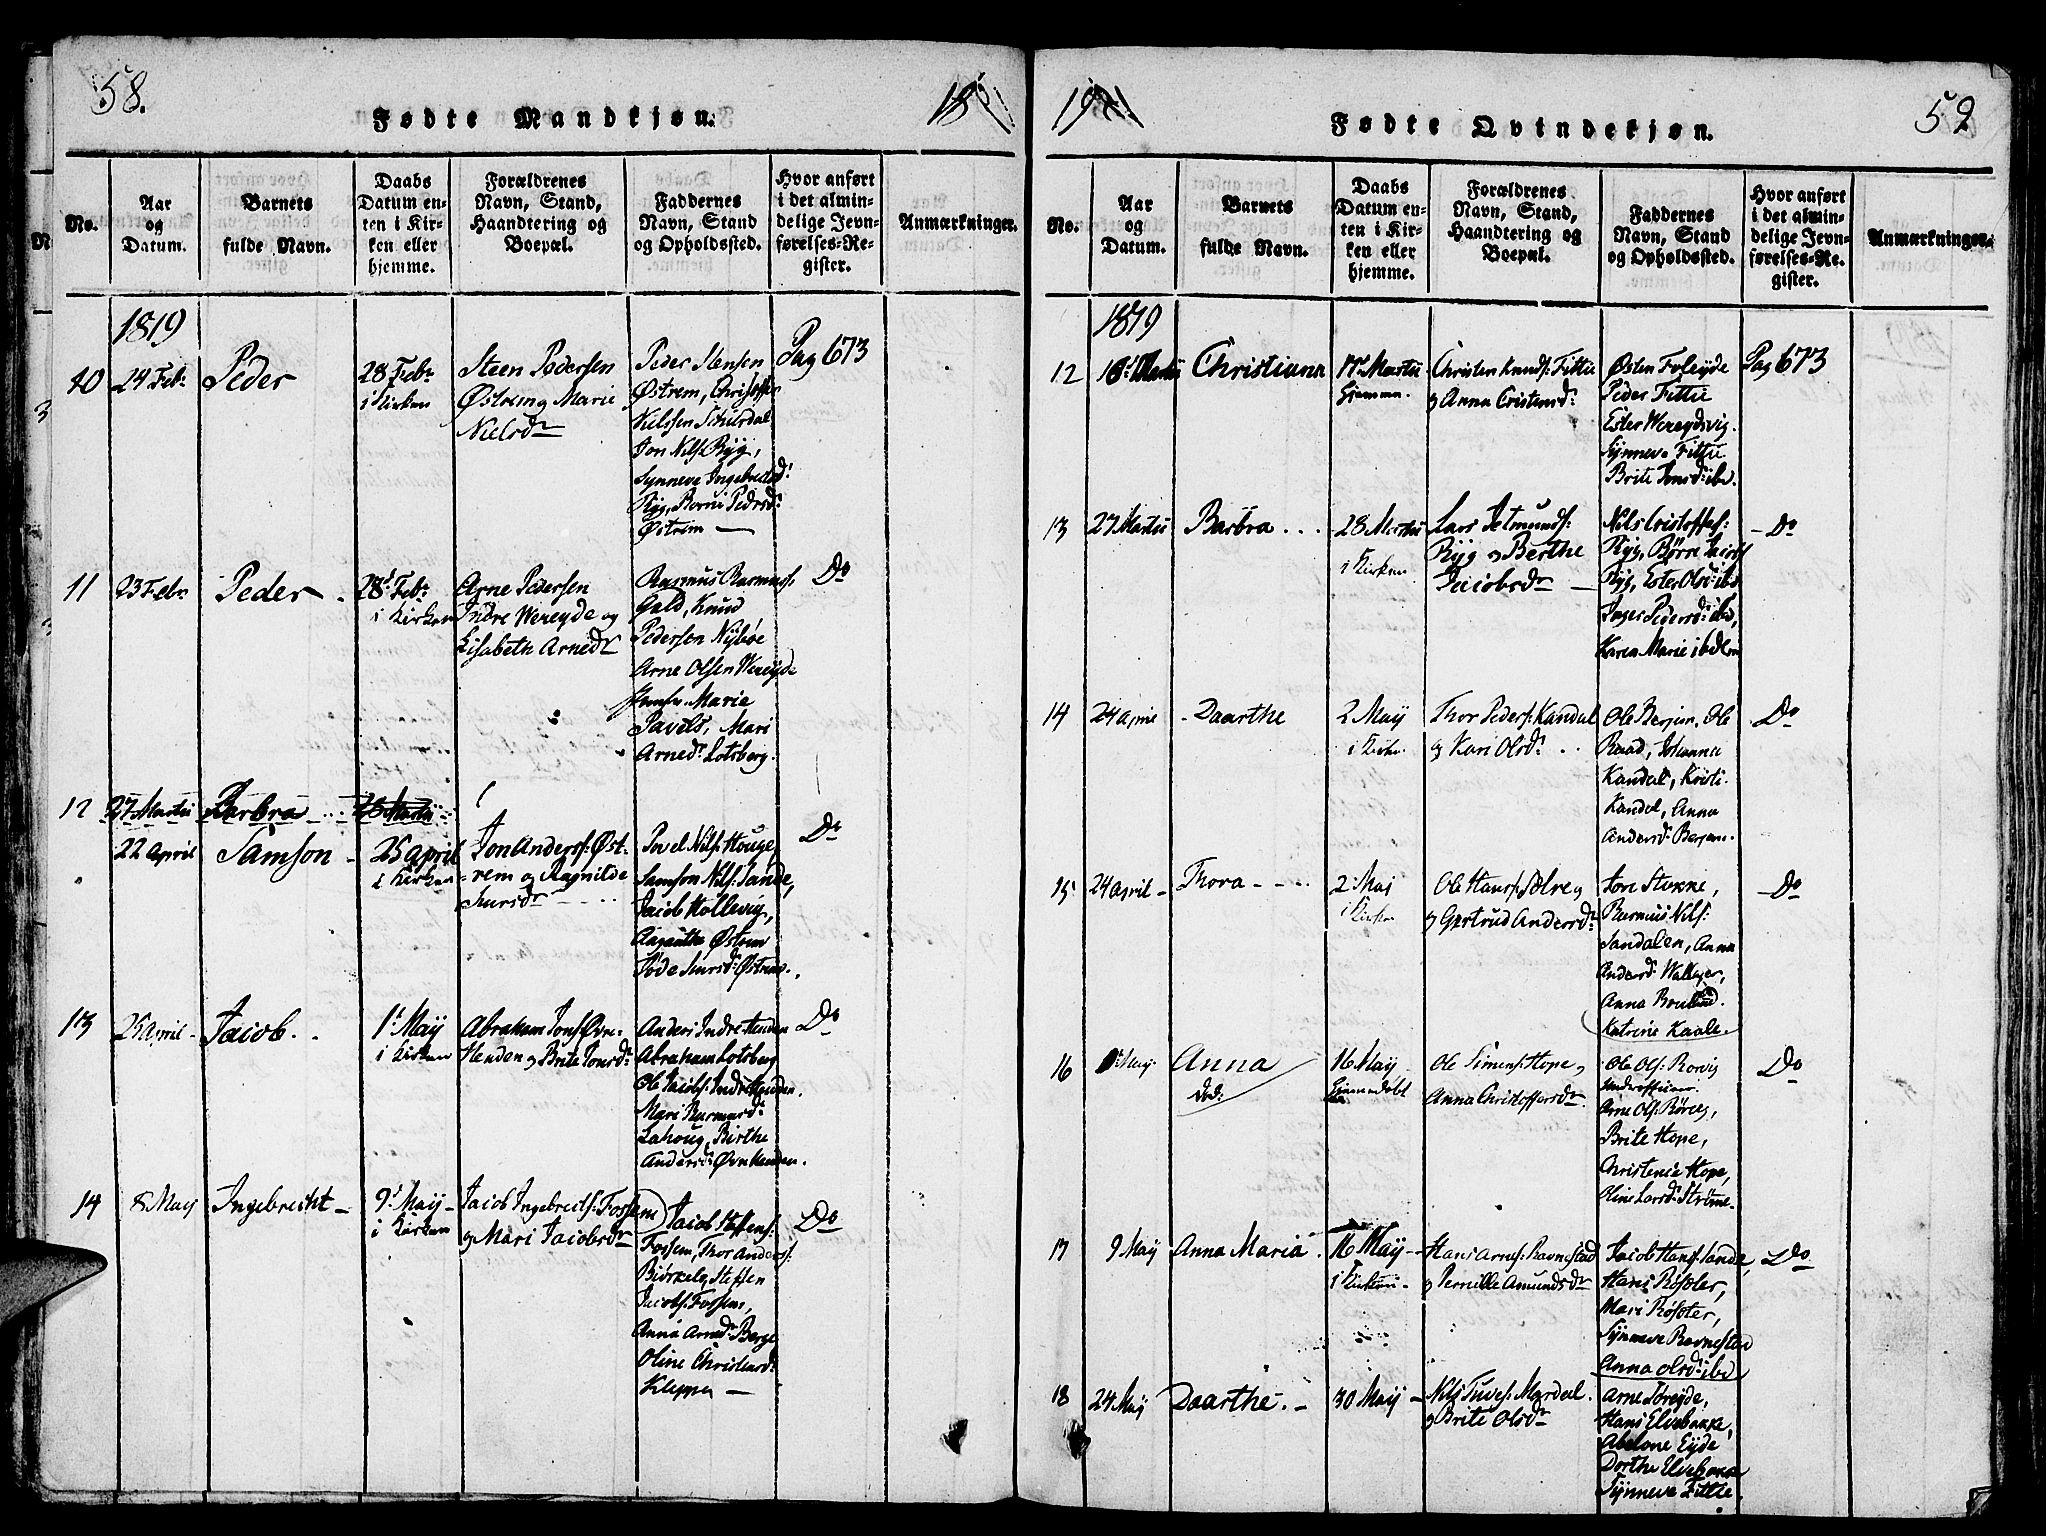 58.
Fødte Mandkjøn.
18
No.
Aar
og
Datum.
Barnets
fulde Navn.
Daabs
Datum en-
ten i Kir-
ken eller
hjemme.
Forældrenes
Navn, Stand,
Haandtering og
Boepæl.
Faddernes
Navn, Stand
og Opholdssted.
Hvor anført
i det almin-
delige Jevn-
førelses-Re-
gister.
Anmærkninger.
1819
10
24 Febr
Peder
28 Febr
i Kirken
Steen Pedersen
Østrem og Marie
Nielsdr
Peder Stensen
Østrem, Christoffer
Nielssen
Jon Nils: Ryg,
Synneve Ingebretsd:
Ryg, Pedersd:
Østrem
Pag 673
11
23 Febr
Peder
28 Febr
i Kirken
Arne Pedersen
Indre Wereyde og
Lisabeth Arnedr
Rasmus Rasmuss:
Gald, Knud
Pedersen Nybøe
Arne Olsen Wereyde
Marie
Pavels, Mari
Arned: Lotsberg.
Do
12
27 Martii
Barbra
28 Martii
22 April
Samson
25 April
i Kirken
Jon Anderss: Øst-
rem og Ragnilde
Povel Nils: Houge,
Samson Nils: Sande,
Jacob Hollevig,
Aagaathe Østrem
Østrem.
Do
13
25 April
Jacob
1 Maÿ
i Kirken
Abraham Jons: Øvre-
Henden og Brite Jonsdr
Anders Indre Henden
Abraham Lotsberg
Ole Jacobs: Indre Henden.
Mari Rasmusdr
Lahoug, Birthe
Andersd: Øvre Henden.
Do
14
8 May
Ingebrecht
9 Maÿ
i Kirken
Jacob Ingebrets: Fossem
og Mari Jacobsdr
Jacob Steffens:
Fossem, Thor Anders:
Biørkely, Steffen
Jacobs: Fossem,
Anna Arned: Berge
Oline Christensd:
Kleppe
Do
19
52
Fødte Qvindekjøn.
No.
Aar
og
Datum.
Barnets
fulde Navn.
Daabs
Datum en-
ten i Kir-
ken eller
hjemme.
Forældrenes
Navn, Stand,
Haandtering og
Boepæl.
Faddernes
Navn, Stand
og Opholdssted.
Hvor anført
i det almin-
delige Jevn-
førelses-Re-
gister.
Anmærkninger.
1819
12
Martii
Christiana
17 Martii
Hjemme.
Christen Knuds: Fittie
og Anna Cristensd:
Østen Foleyde
Peder Fittie
Ester Wereydsvig.
Synneve Fittie
Brite Jonsd: ibd.
Pag 673
13
27 Martii
Barbra
28 Martii
i Kirken
Lars Jetmunds:
Ryg og Berthe
Jacobsdr
Nils Cristoffes:
Ryg, Børre
Ryg, Ester Olsd: ibd
Inger Pedersd: ibd,
Karen Marie ibdem
Do
14
24 April
Daarthe
2 Maÿ
i Kirken
Thor Peders: Kandal
og Kari Olsd:
Ole Bergem, Ole
Raad, Johanna
Kandal, Kristi
Kandal, Anna
Andersd: Bergem.
Do
15
24 April
Thora
2 Maj
i Kirken
Ole Hans: Sælve
og Gjertrud Andersdr
Tore Stokke,
Rasmus Nils:
Sandalen, Anna
Andersd:
Anna
Katrine Kaale
Do
16
May
Anna
død:
16 Maÿ
Hjemmedøbt
Ole Simens: Hope og
Anna Christoffersdr
Ole Ols: Rorvig
Underofficeer.
Arne Ols: Rørvig,
Brite Hope,
Christence Hope,
Oline Larsd: Strøme.
Do
17
9 Maÿ
Anna Maria
16 Maÿ
i Kirken
Hans Arnes: Ravnestad
og Pernille Amundsdr
Jacob Hans: Sande,
Hans Røssler,
Mari Røssler,
Synneve Ravnestad
Anna Olsd: ibd
Do
18
24 Maÿ
Daarthe
30 Maÿ
Nils Tuves: Mardal
og Brite Olsdr
Arne Foreyde,
Hans Elvebakke,
Abelone Eyde
Dorthe Elvebakke
Synneve Fittie.